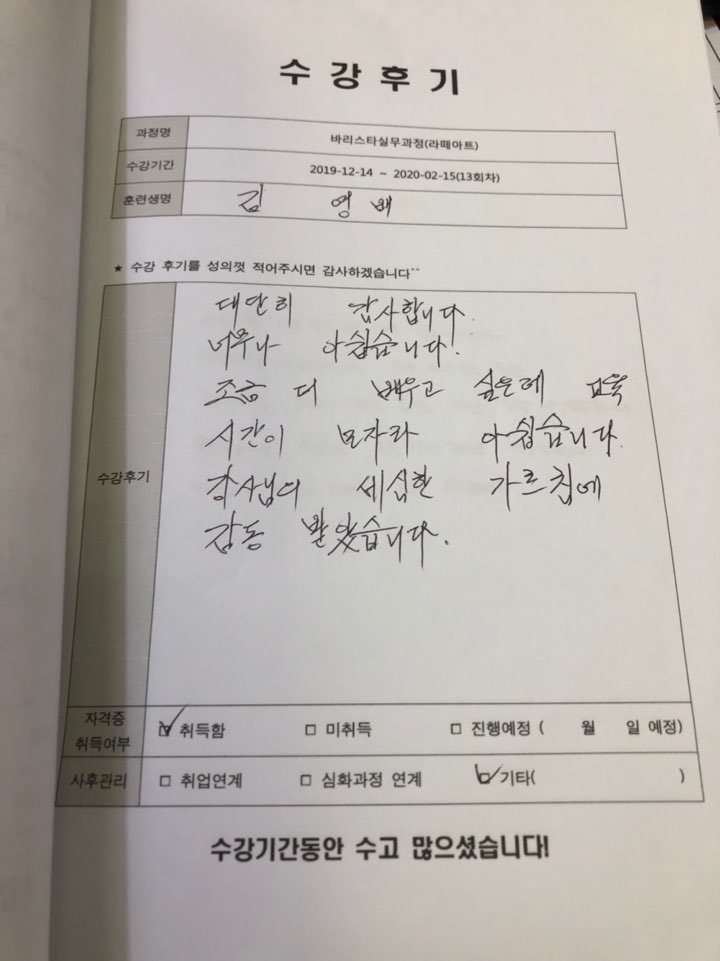 수강후기
과정명 바리스타실무과정(라떼아트)
수강기간 2019-12-14 ~ 2020-02-15(13회차)
훈련생명 김 영 배
★ 수강 후기를 성의껏 적어주시면 감사하겠습니다^^
수강후기
대단히 감사합니다.
너무나 아쉽습니다!
조금 더 배우고 싶은데 교육
시간이 모자라 아쉽습니다.
강사님의 세심한 가르침에
감동 받았습니다.
자격증 취득여부 □ 취득함 □ 미취득 □ 진행예정 ( 월 일 예정)
사후관리 □ 취업연계 □ 심화과정 연계 □ 기타( )
수강기간동안 수고 많으셨습니다!